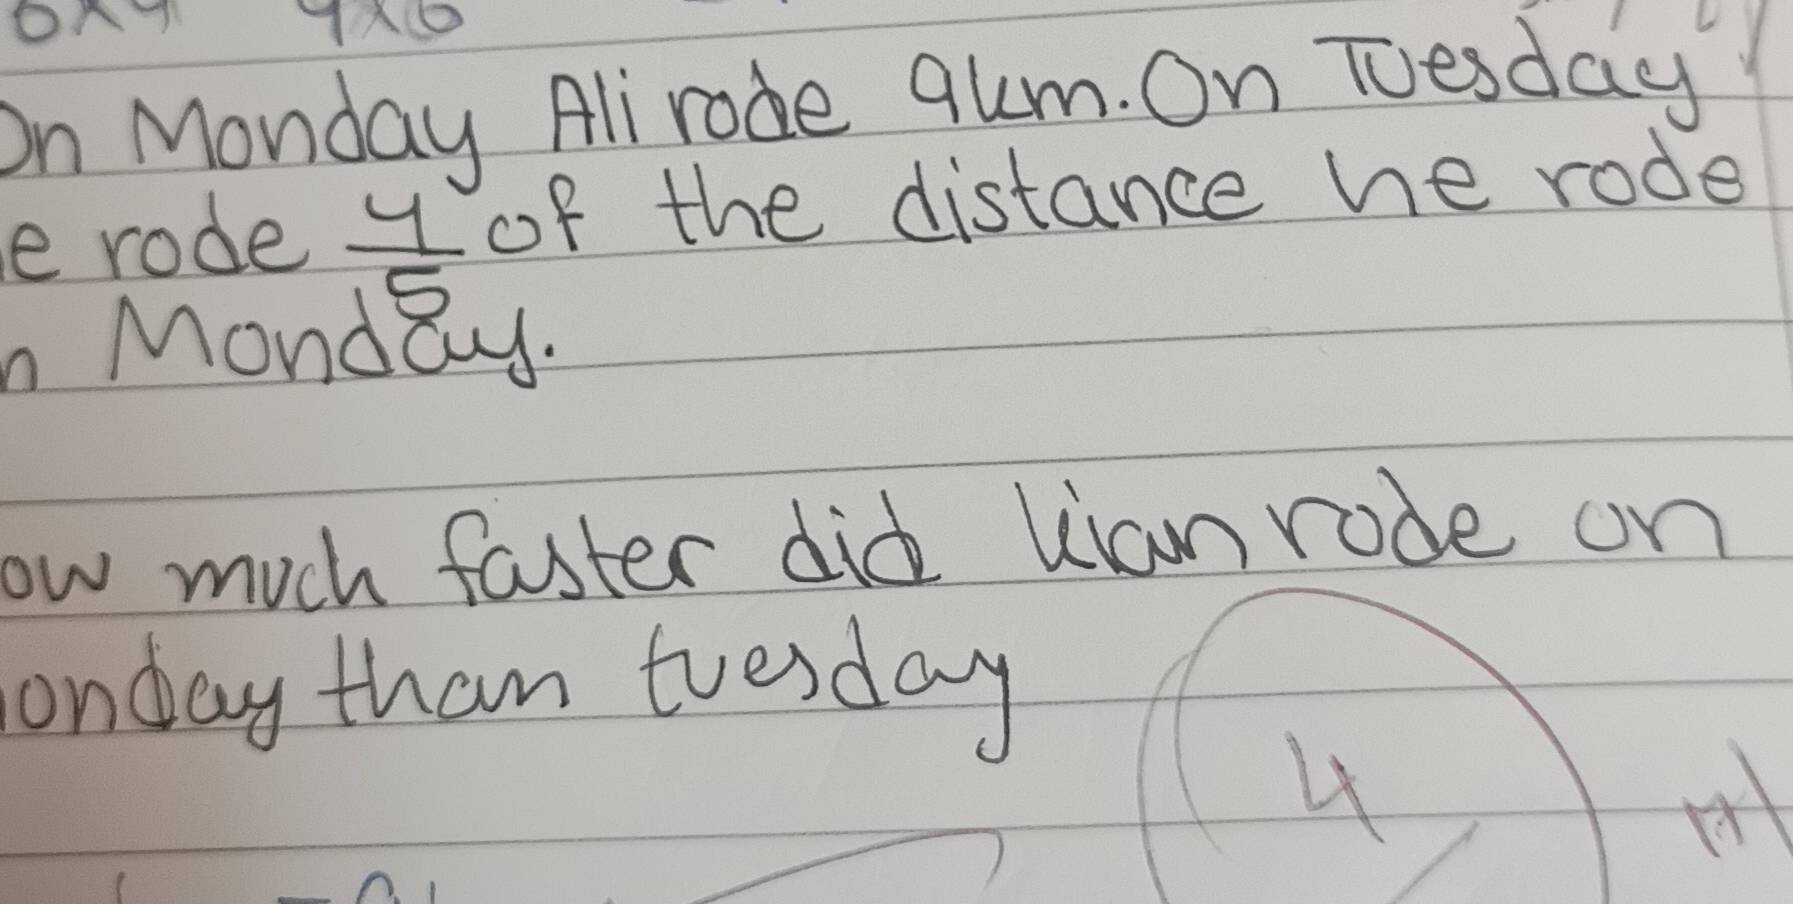 6x4 4x6
On Monday Ali rode 9km. On Tuesday
e rode 4/5 of the distance he rode
n Monday.
ow much faster did kian rode on
onday than tuesday
4